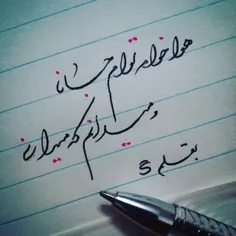 هوا خواه توام جانا
و میدانم که میدانی
بقلم S